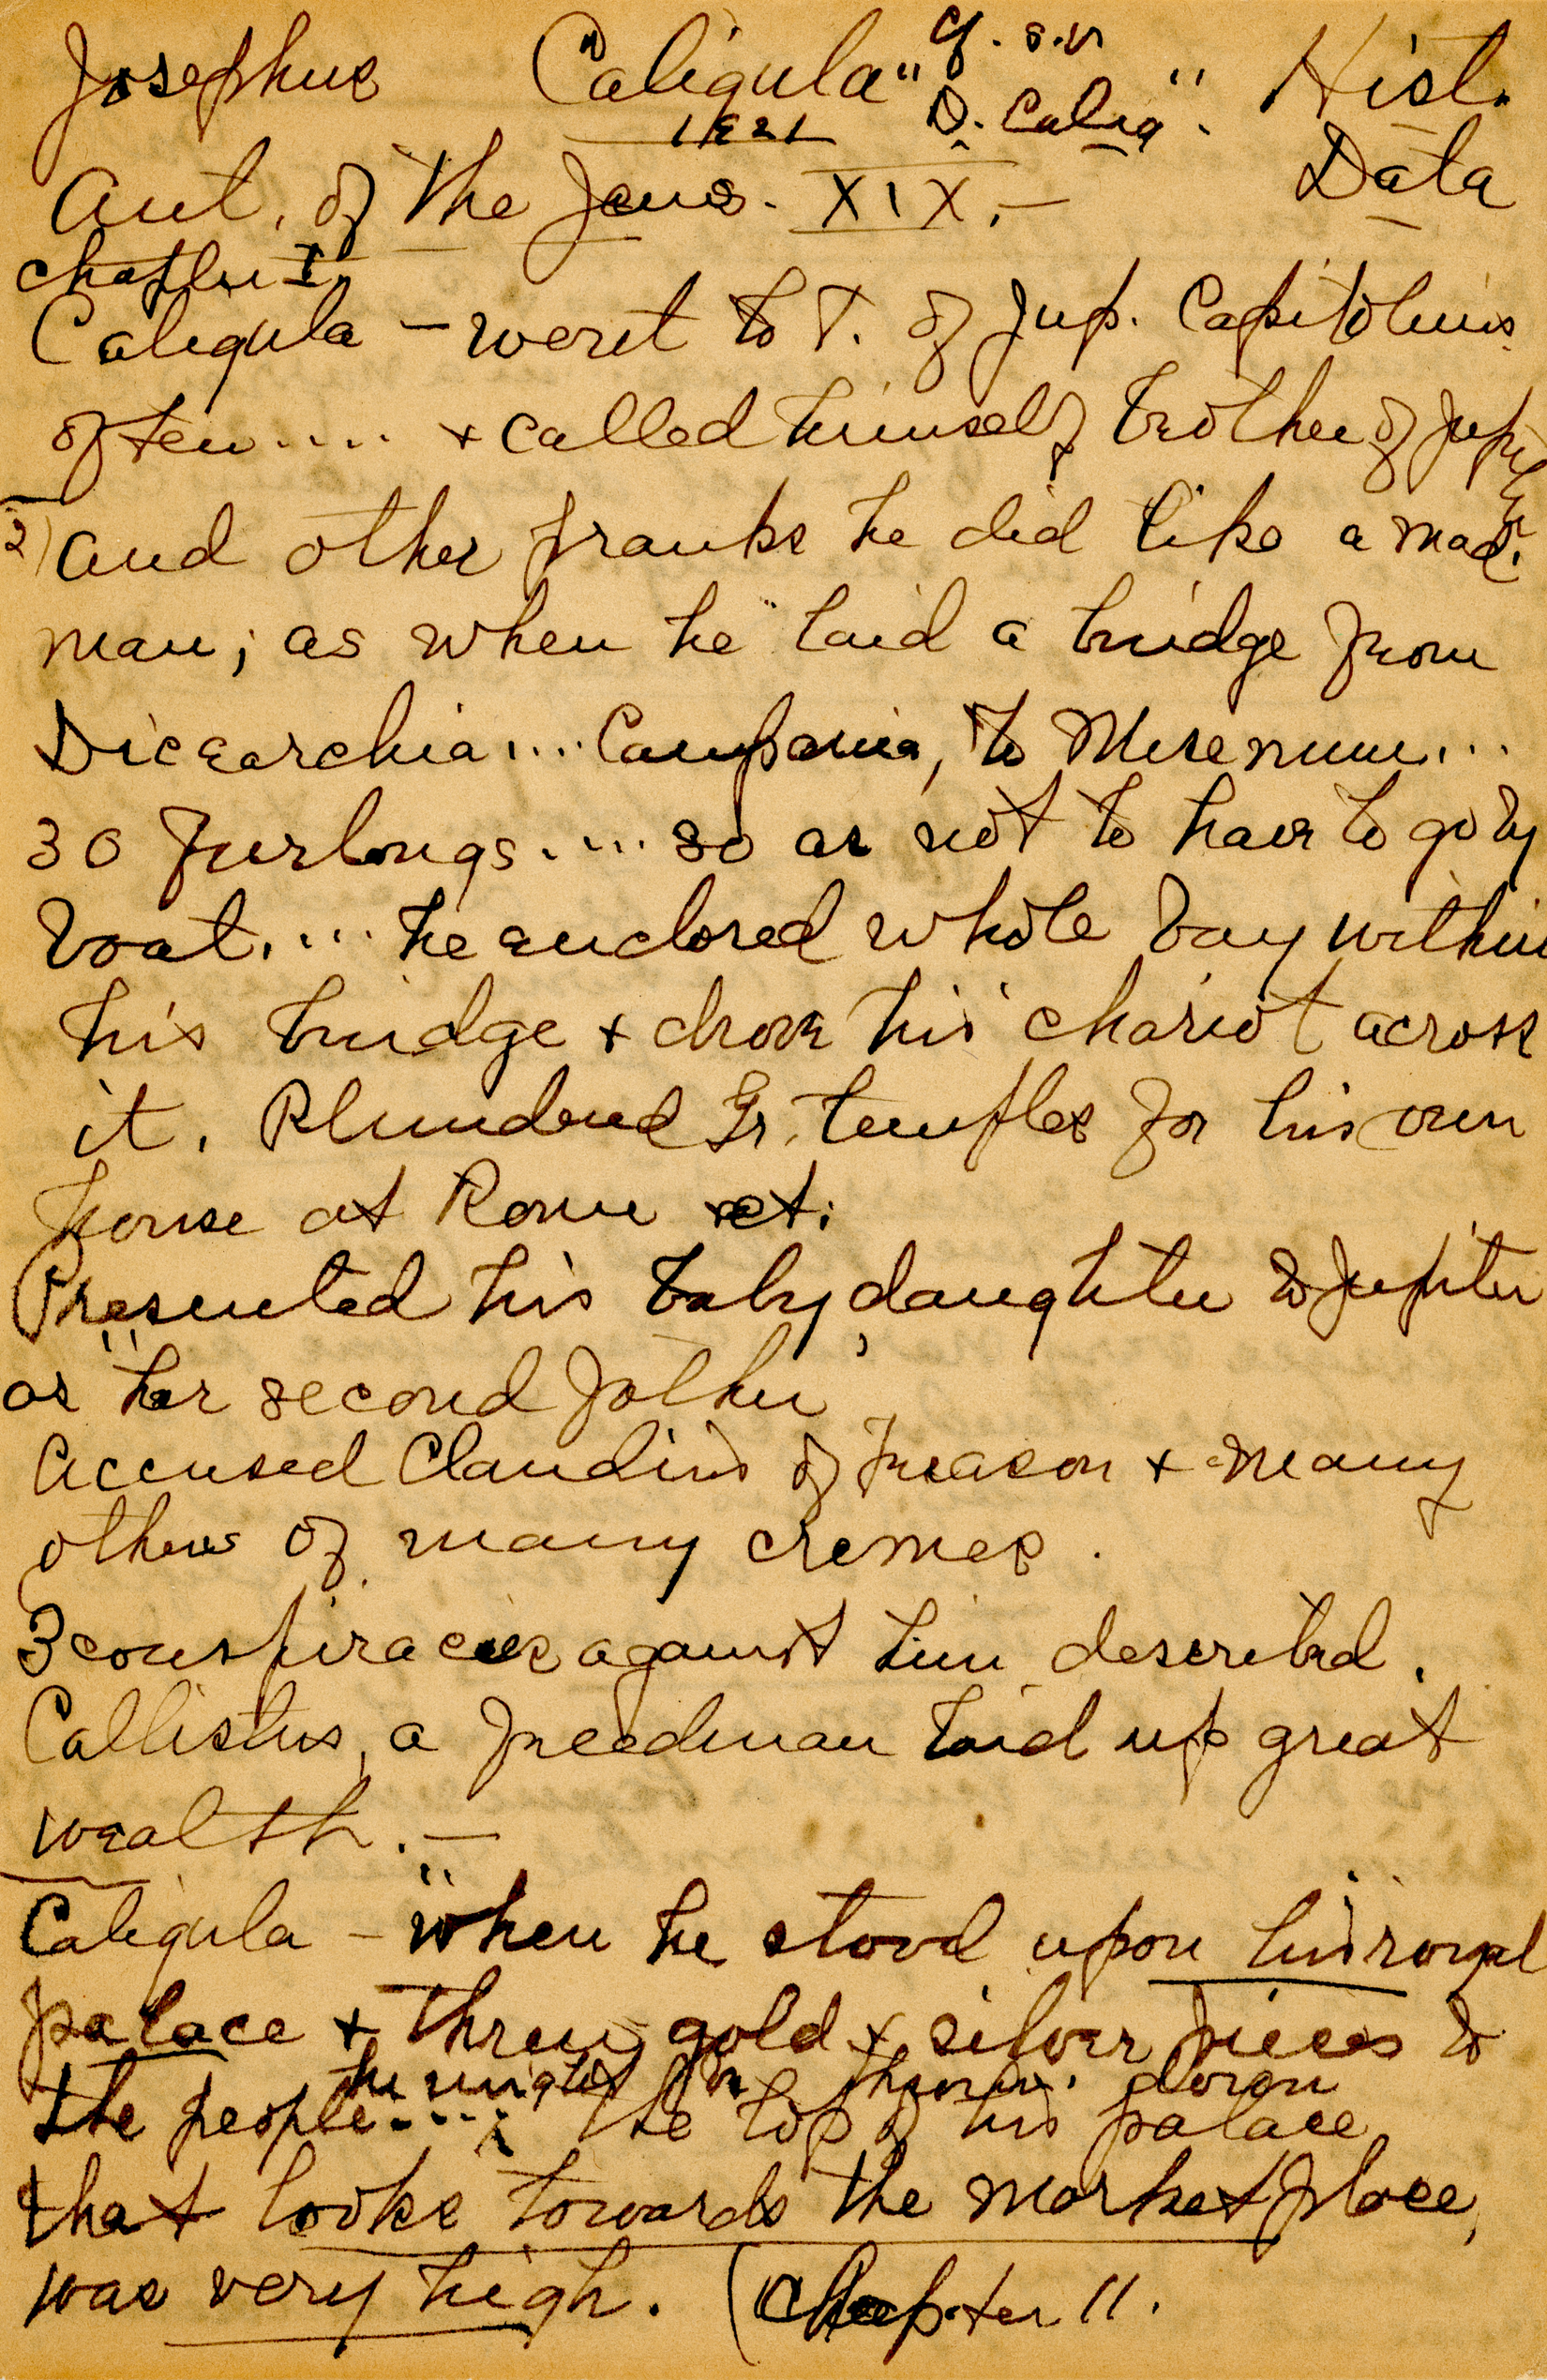 Josephus "Caligula" cf. s.v. Hist.
D. Calig". Data
Ant. of the Jews. XIX. —
Chapter I.
Caligula — went to T. of Jup. Capitolinus
often .... + called himself brother of Jupiter.
2) and other pranks he did like a mad
man; as when he laid a bridge from
Dicearchia .... Campania, to Misenum ...
30 furlongs .... so as not to have to go by
boat. .... he enclosed whole bay within
his bridge + drove his chariot across
it. Plundered Gr. temples for his own
house at Rome
Presented his baby daughter to Jupiter
as "her second father"
Accused Claudius of treason + many
others of many crimes.
3 conspiracies against him described.
Callistus, a freedman laid up great
wealth. —
Caligula — "when he stood upon his royal
palace + threw gold + silver pieces to
he might be thrown down
the people ....; the top of his palace
that looks towards the market place,
was very high. (Chapter 11.